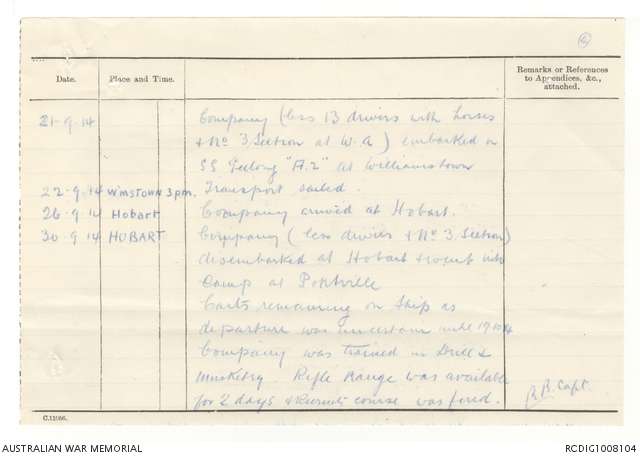 6
Date.
Place and Time.
Remarks or References
to Appendices, &c.,
attached.
21-9-14
Company (less 13 drivers with horses
& No 3 Section at W.A) embarked on
SS Geelong "A.2" at Williamstown
22-9-14 Wmstown 3 pm. Transport sailed.
26-9 14 Hobart Company arrived at Hobart.
30-9 14 HOBART Company (less drivers & No 3 Section)
disembarked at Hobart & went into
Camp at Pontville
Carts remaining on Ship as
departure was uncertain until
Company was trained in Drill &
Musketry. Rifle Range was available
for 2 days & Recruits course was fired.
Capt.
C.12986.
AUSTRALIAN WAR MEMORIAL
RCDIG1008104